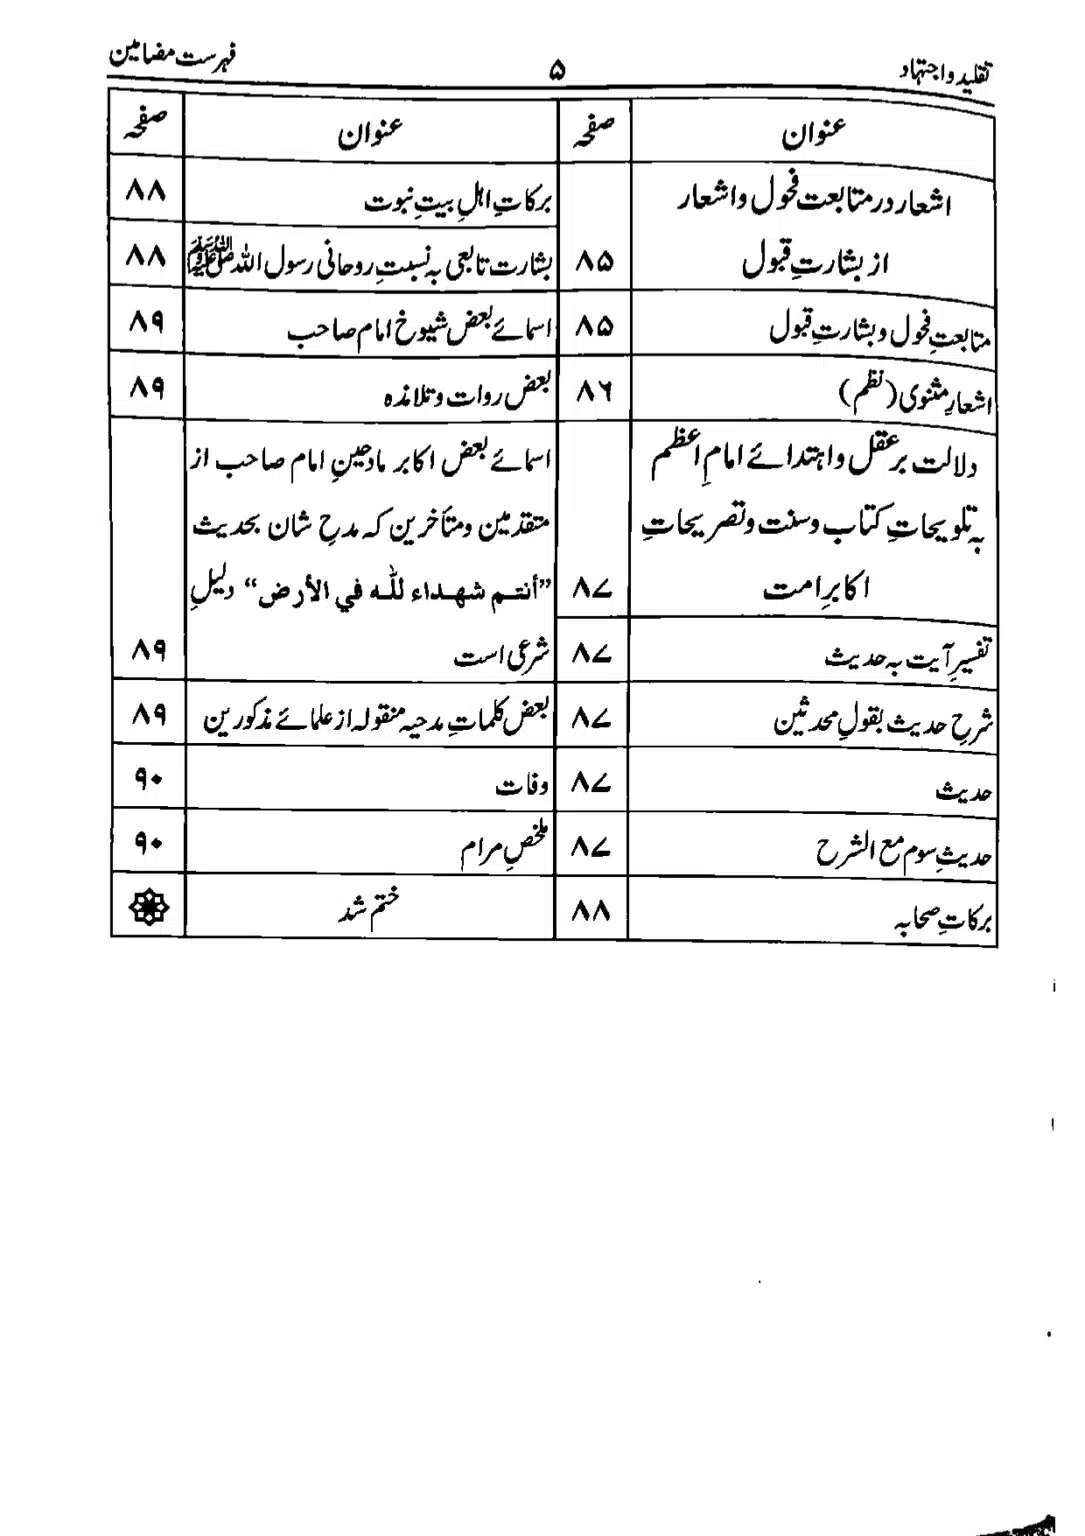 تقلید و اجتہاد ۵ فہرست مضامین
عنوان صفحہ
اشعار در متابعت فحول و اشعار
از بشارتِ قبول ۸۵
متابعتِ فحول و بشارتِ قبول ۸۵
اشعارِ مثنوی (نظم) ۸۶
دلالت بر عقل و اہتدائے امامِ اعظم
بہ تلویحاتِ کتاب و سنت و تصریحاتِ
اکابرِ امت ۸۷
تفسیرِ آیت بہ حدیث ۸۷
شرحِ حدیث بقولِ محدثین ۸۷
حدیث ۸۷
حدیثِ سوم مع الشرح ۸۷
برکاتِ صحابہ ۸۸
عنوان صفحہ
برکاتِ اہلِ بیتِ نبوت ۸۸
بشارت تابعی بہ نسبتِ روحانی رسول اللہ ﷺ ۸۸
اسمائے بعض شیوخ امام صاحب ۸۹
بعض روات و تلامذہ ۸۹
اسمائے بعض اکابر مادحینِ امام صاحب از
متقدمین ومتأخرین کہ مدحِ شان بحدیث
”أنتم شهداء لله في الأرض“ دلیلِ
شرعی است ۸۹
بعض کلماتِ مدحیہ منقولہ از علمائے مذکورین ۸۹
وفات ۹۰
ملخصِ مرام ۹۰
ختم شد